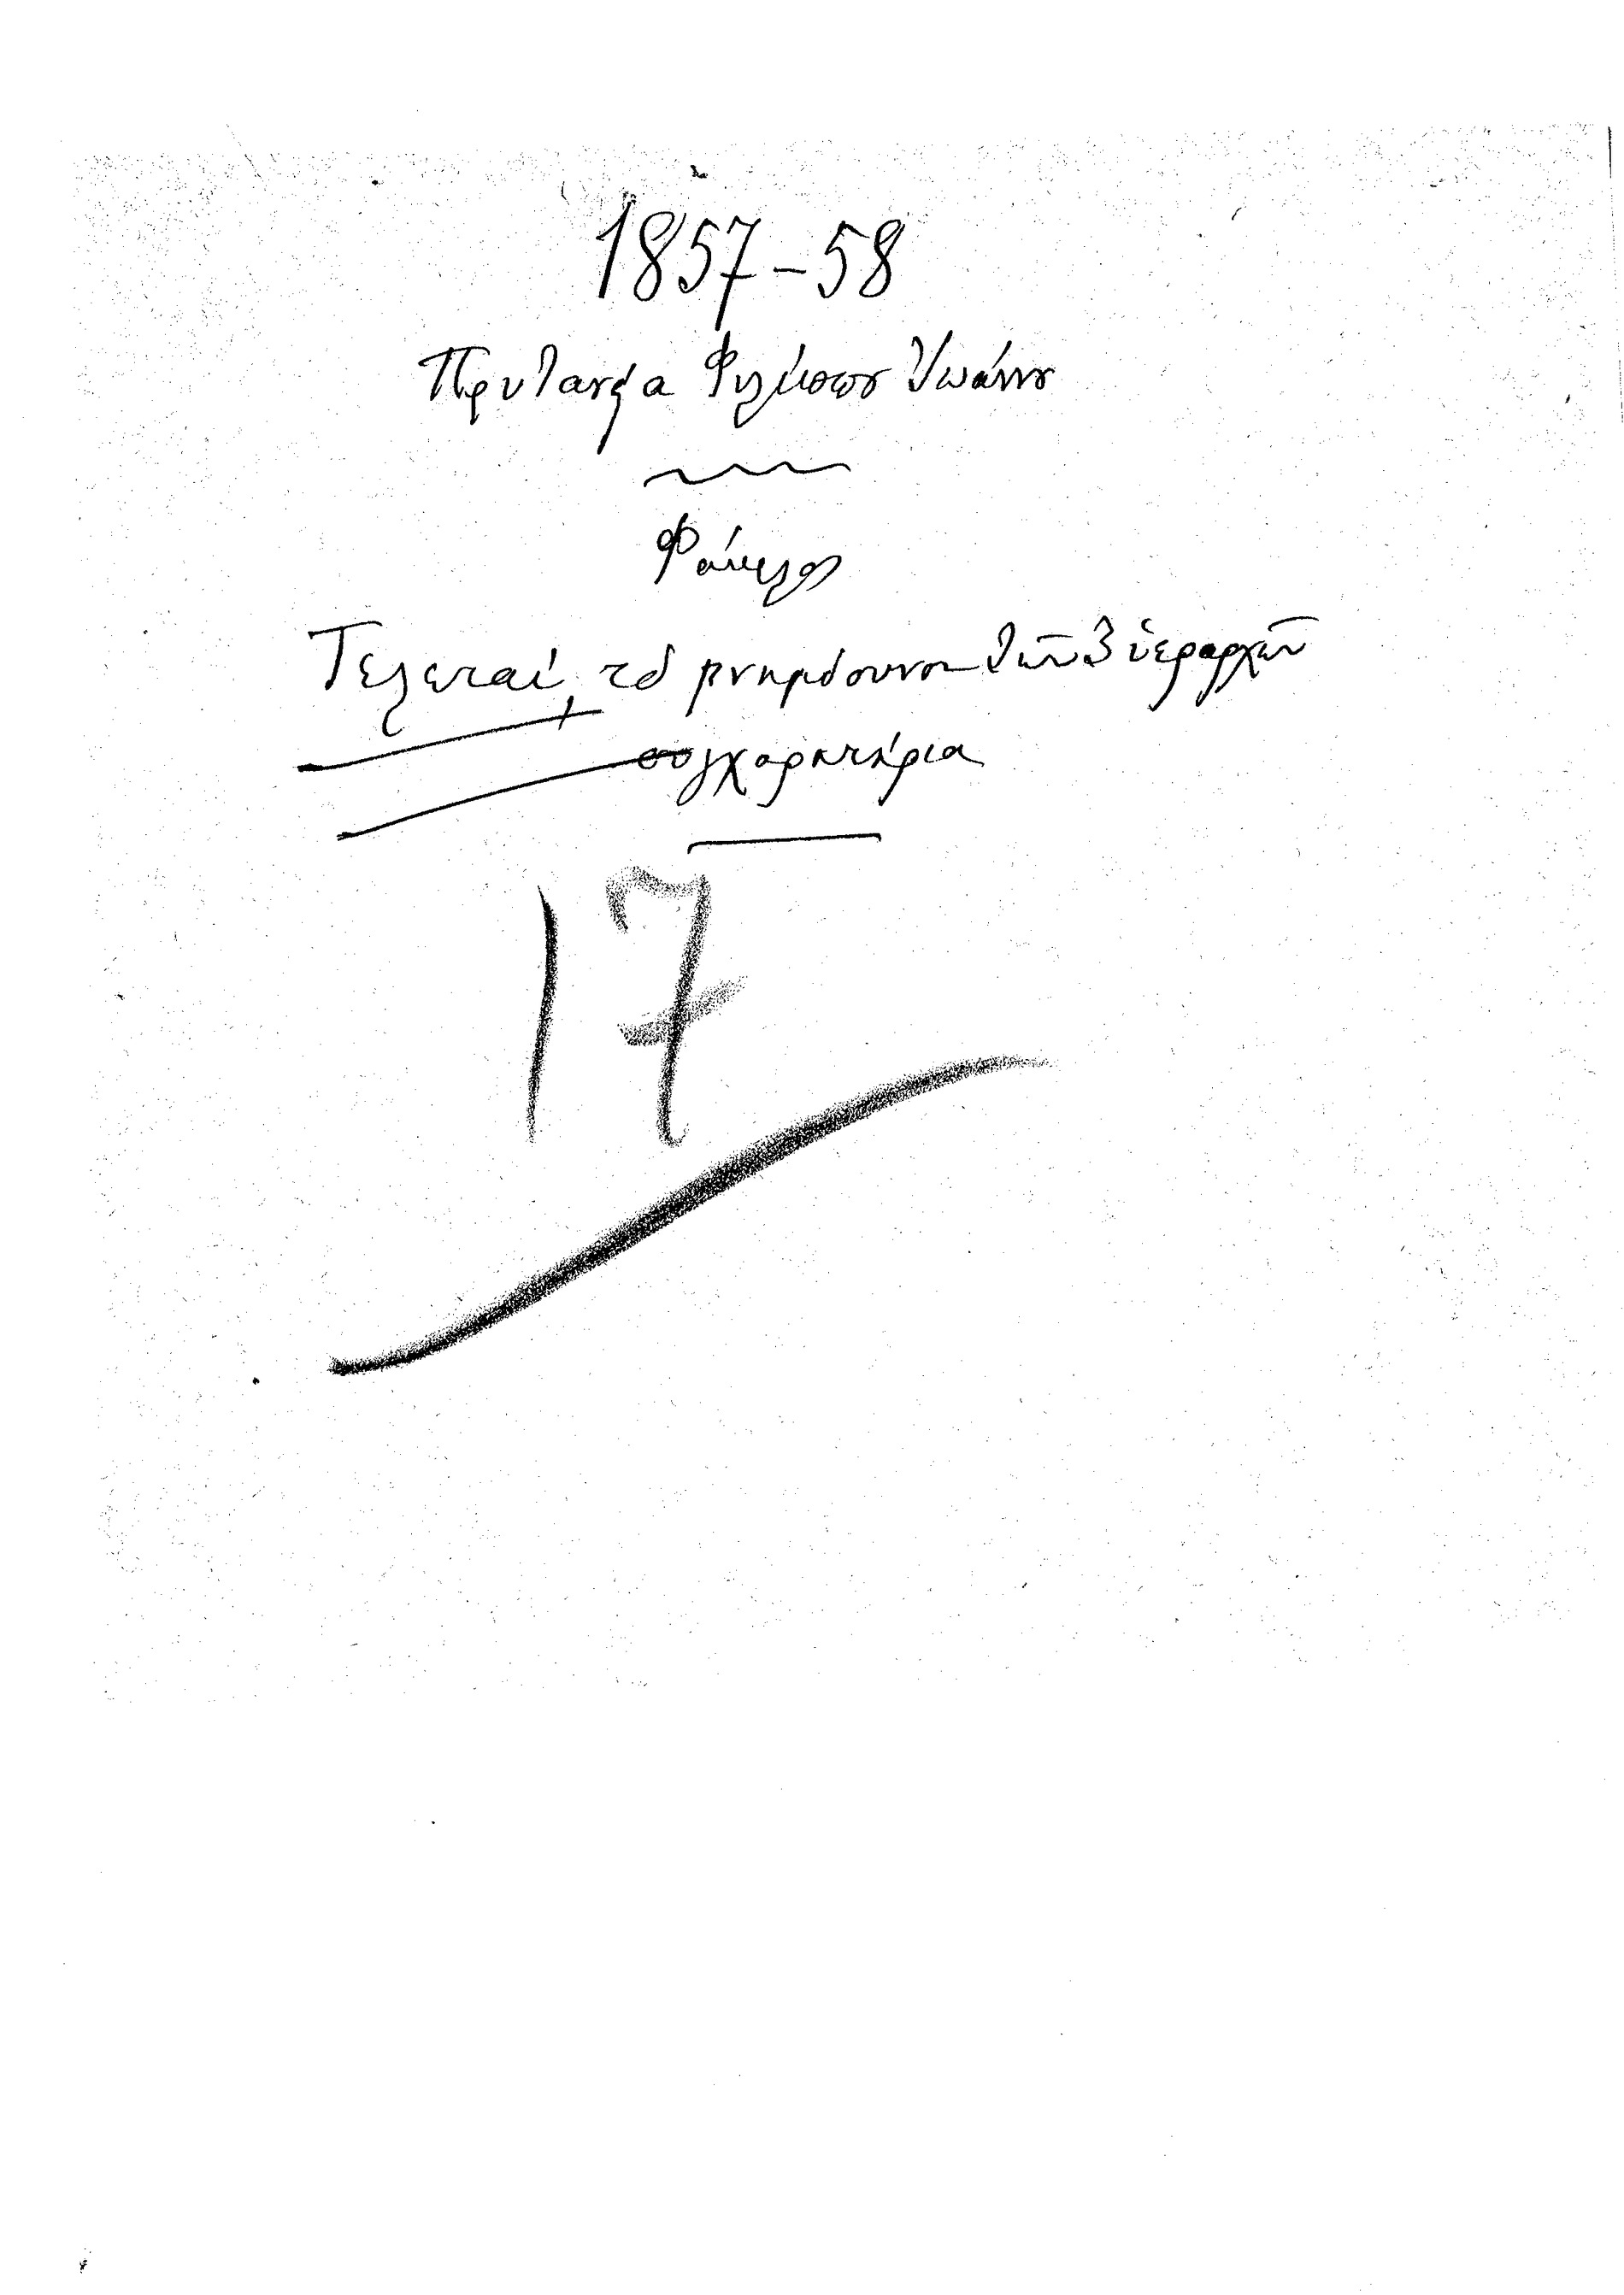 1857-58
Πρυτανεία Φιλίππου Ἰωάννου
Φάκελος
Τελεταί, τὸ μνημόσυνον τῶν 3 ἱεραρχῶν
συγχαρητήρια
17